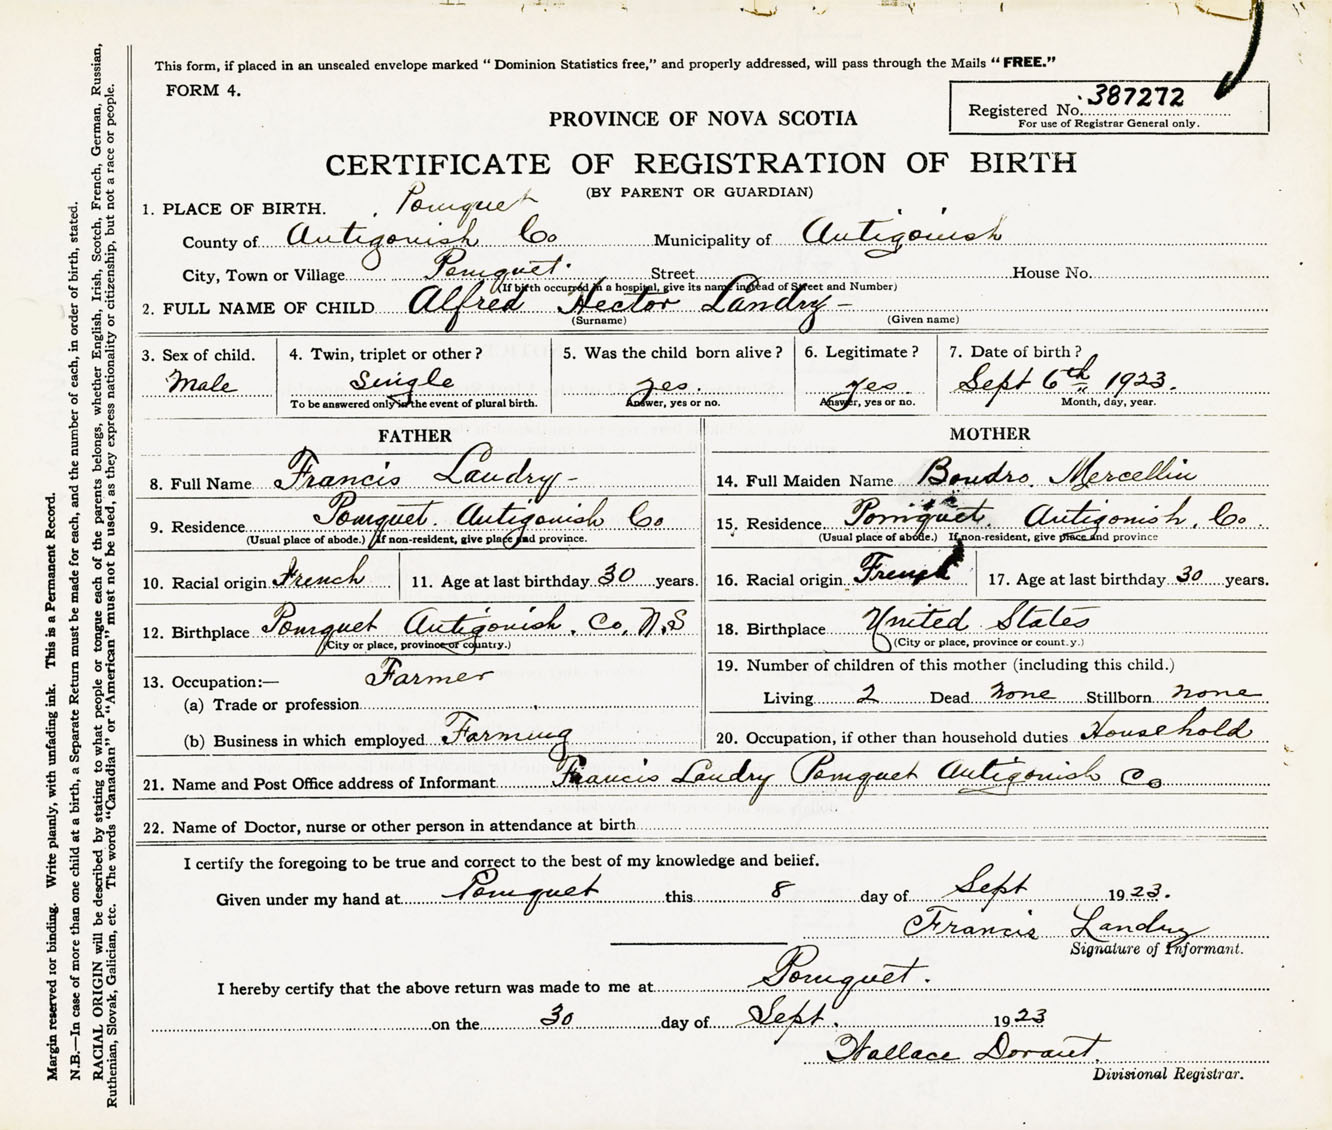 This form, if placed in an unsealed envelope marked "Dominion Statistics free," and properly addressed, will pass through the Mails "FREE."
FORM 4.
Registered No. 387272
For use of Registrar General only.
PROVINCE OF NOVA SCOTIA
CERTIFICATE OF REGISTRATION OF BIRTH
(BY PARENT OR GUARDIAN)
1. PLACE OF BIRTH. Pomquet
County of Antigonish Co Municipality of Antigonish
City, Town or Village Pomquet. Street House No.
(If birth occurred in a hospital, give its name instead of Street and Number)
2. FULL NAME OF CHILD Alfred Hector Landry -
(Surname) (Given name)
3. Sex of child. 4. Twin, triplet or other? 5. Was the child born alive? 6. Legitimate? 7. Date of birth?
Male Single yes. yes Sept 6th 1923.
To be answered only in the event of plural birth. Answer, yes or no. Answer, yes or no. Month, day, year.
FATHER
8. Full Name Francis Landry -
9. Residence Pomquet. Antigonish Co
(Usual place of abode.) If non-resident, give place and province.
10. Racial origin French 11. Age at last birthday 30 years.
12. Birthplace Pomquet Antigonish. Co. N.S
(City or place, province or country.)
13. Occupation:— Farmer
(a) Trade or profession
(b) Business in which employed Farming
MOTHER
14. Full Maiden Name Boudro. Mercellin
15. Residence Pomquet. Antigonish. Co.
(Usual place of abode.) If non-resident, give place and province
16. Racial origin French 17. Age at last birthday 30 years.
18. Birthplace United States
(City or place, province or count.y.)
19. Number of children of this mother (including this child.)
Living 2 Dead none Stillborn none
20. Occupation, if other than household duties Household
21. Name and Post Office address of Informant Francis Landry Pomquet Antigonish Co
22. Name of Doctor, nurse or other person in attendance at birth
I certify the foregoing to be true and correct to the best of my knowledge and belief.
Given under my hand at Pomquet this 8 day of Sept 1923.
Francis Landry
Signature of Informant.
I hereby certify that the above return was made to me at Pomquet.
on the 30 day of Sept. 1923
Wallace Dorant.
Divisional Registrar.
Margin reserved for binding. Write plainly, with unfading ink. This is a Permanent Record.
N.B.—In case of more than one child at a birth, a Separate Return must be made for each, and the number of each, in order of birth, stated.
RACIAL ORIGIN will be described by stating to what people or tongue each of the parents belongs, whether English, Irish, Scotch, French, German, Russian,
Ruthenian, Slovak, Galician, etc. The words "Canadian" or "American" must not be used, as they express nationality or citizenship, but not a race or people.